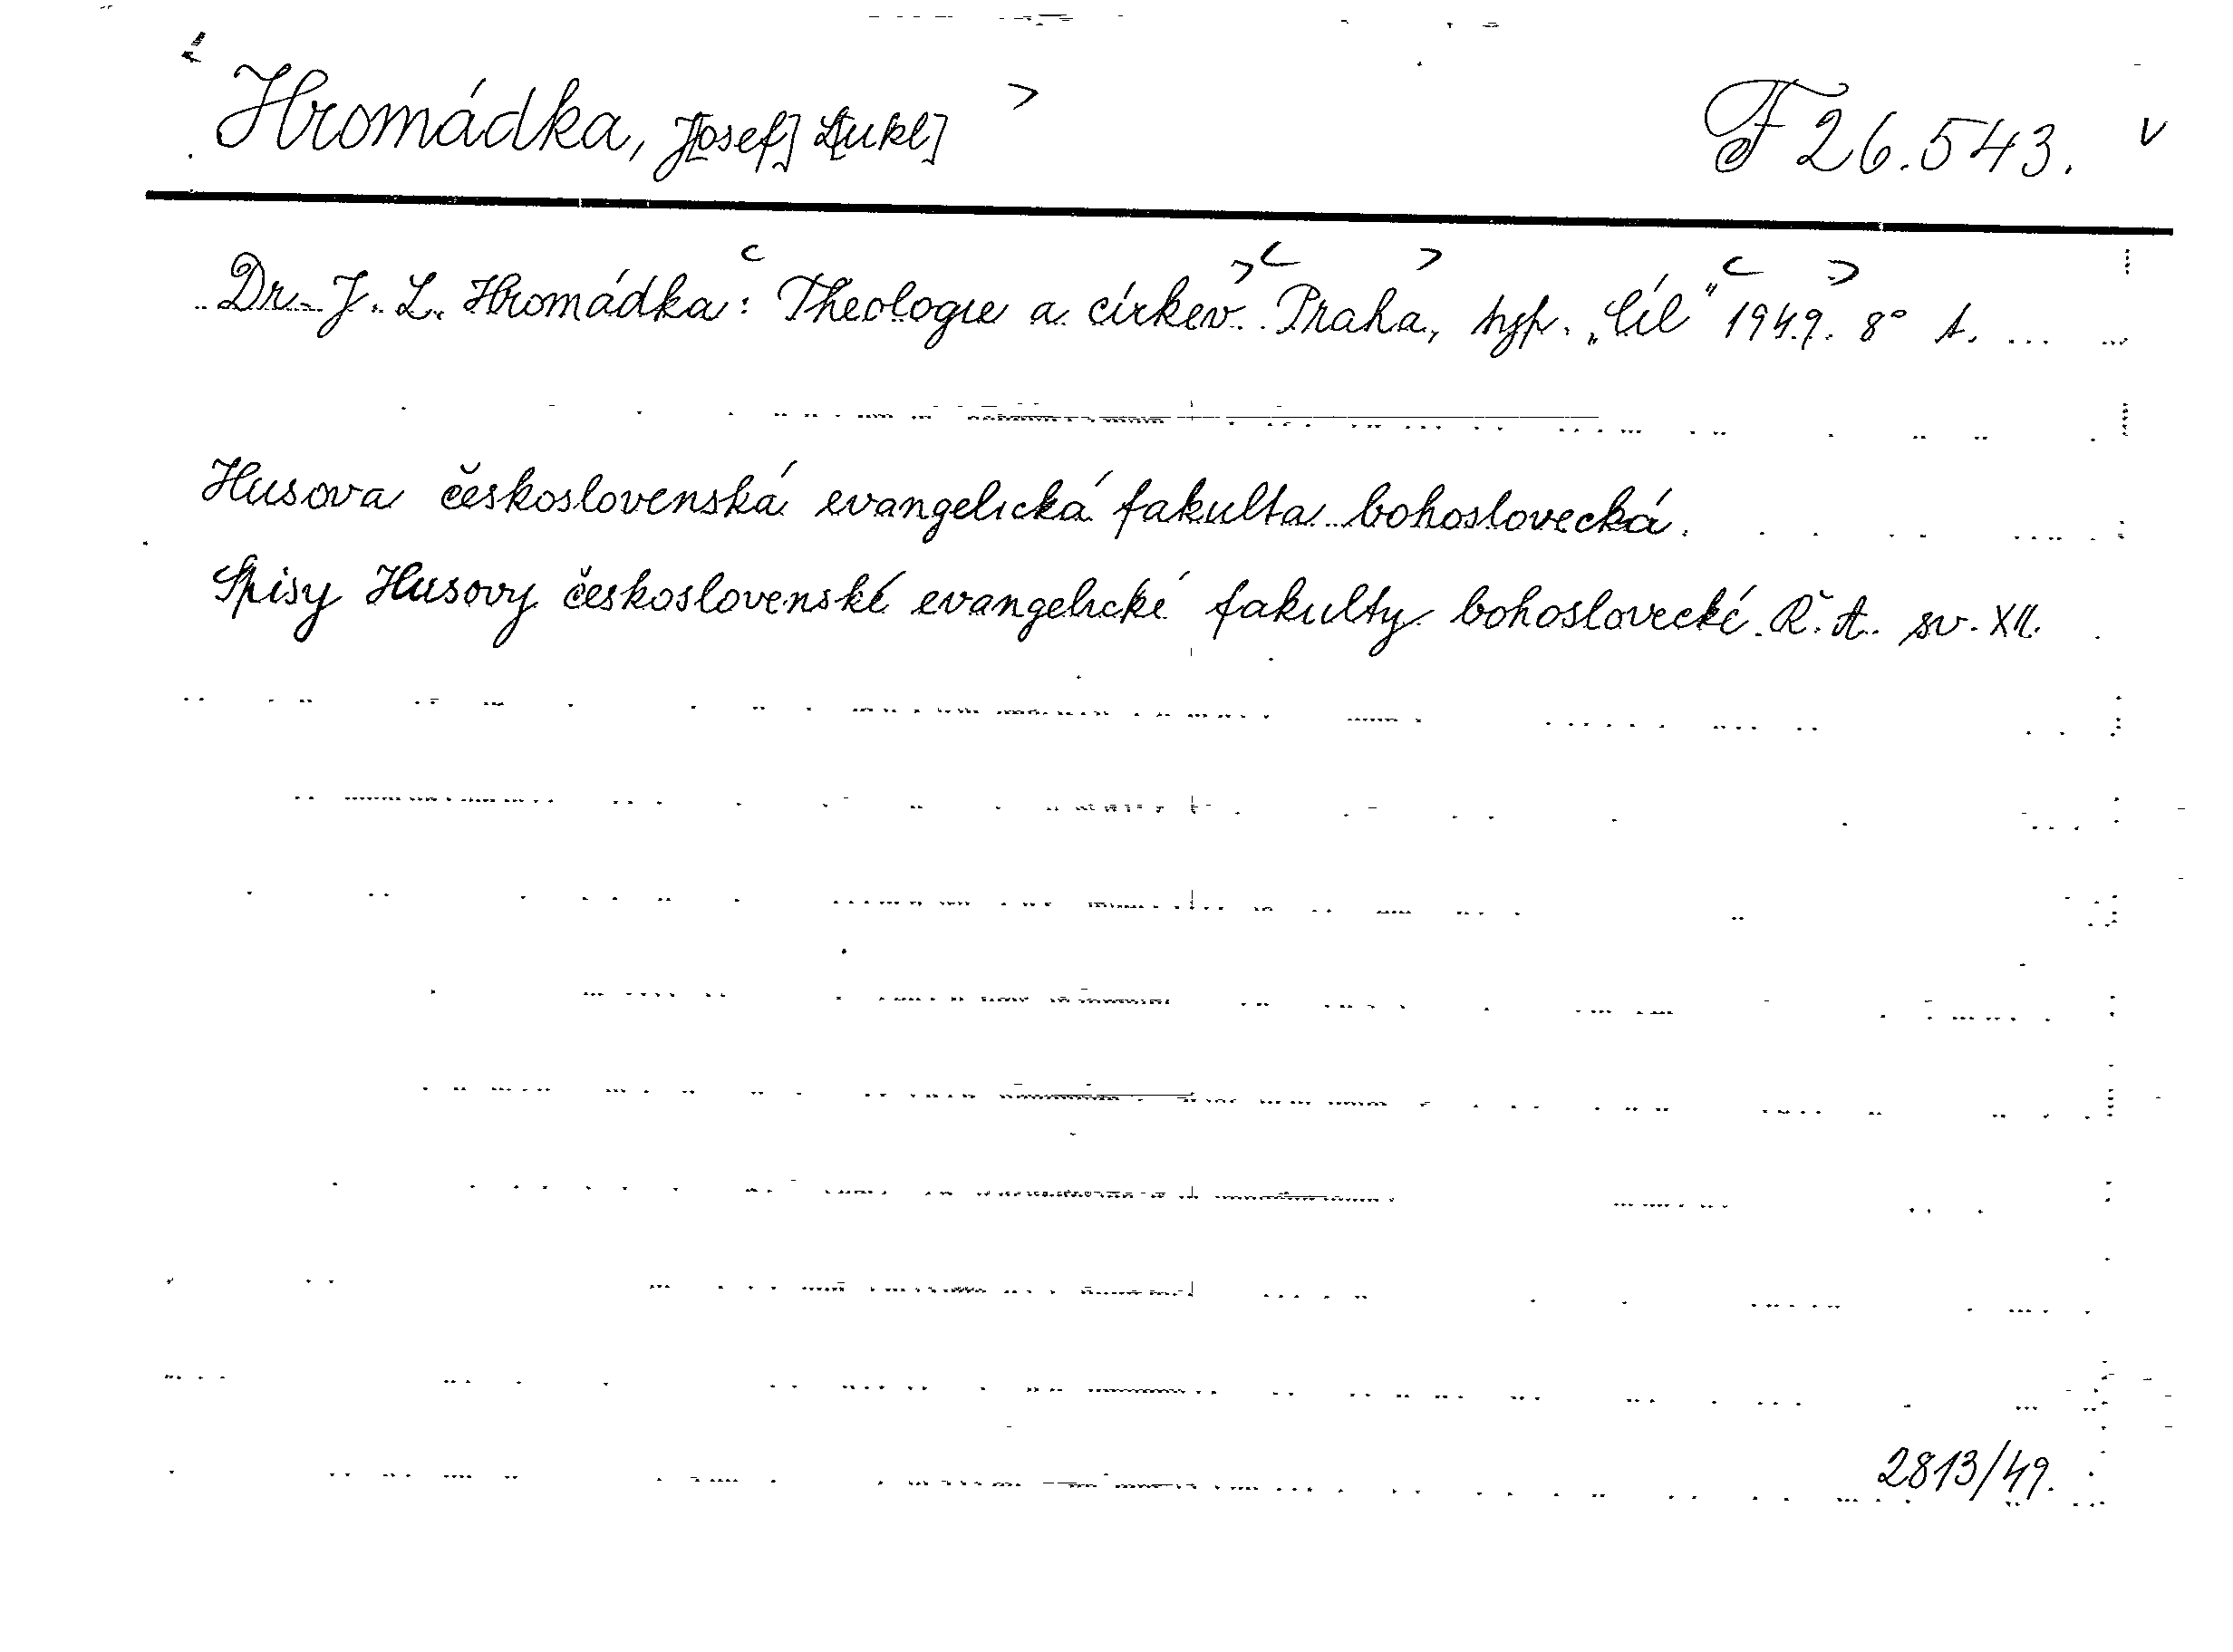 Hromádka, J[osef] L[ukl] F 26.543. v
Dr. J. L. Hromádka: Theologie a církev. Praha, typ. „Cíl" 1949. 8° A.
Husova československá evangelická fakulta bohoslovecká.
Spisy Husovy československé evangelické fakulty bohoslovecké. Ř. A. sv. XII.
2813/49.